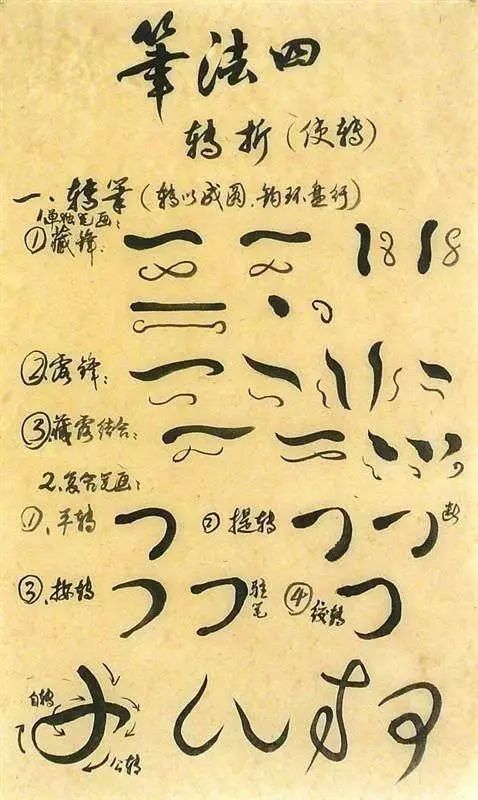 筆法四
转折（使转）
一、转筆（转以成圆、钩环盘行）
1.单独笔画：
①藏锋：
②露锋：
③藏露结合：
2.复合笔画：
①、平转 ②提转 断
③、按转 驻笔 ④绞转
自转
公转